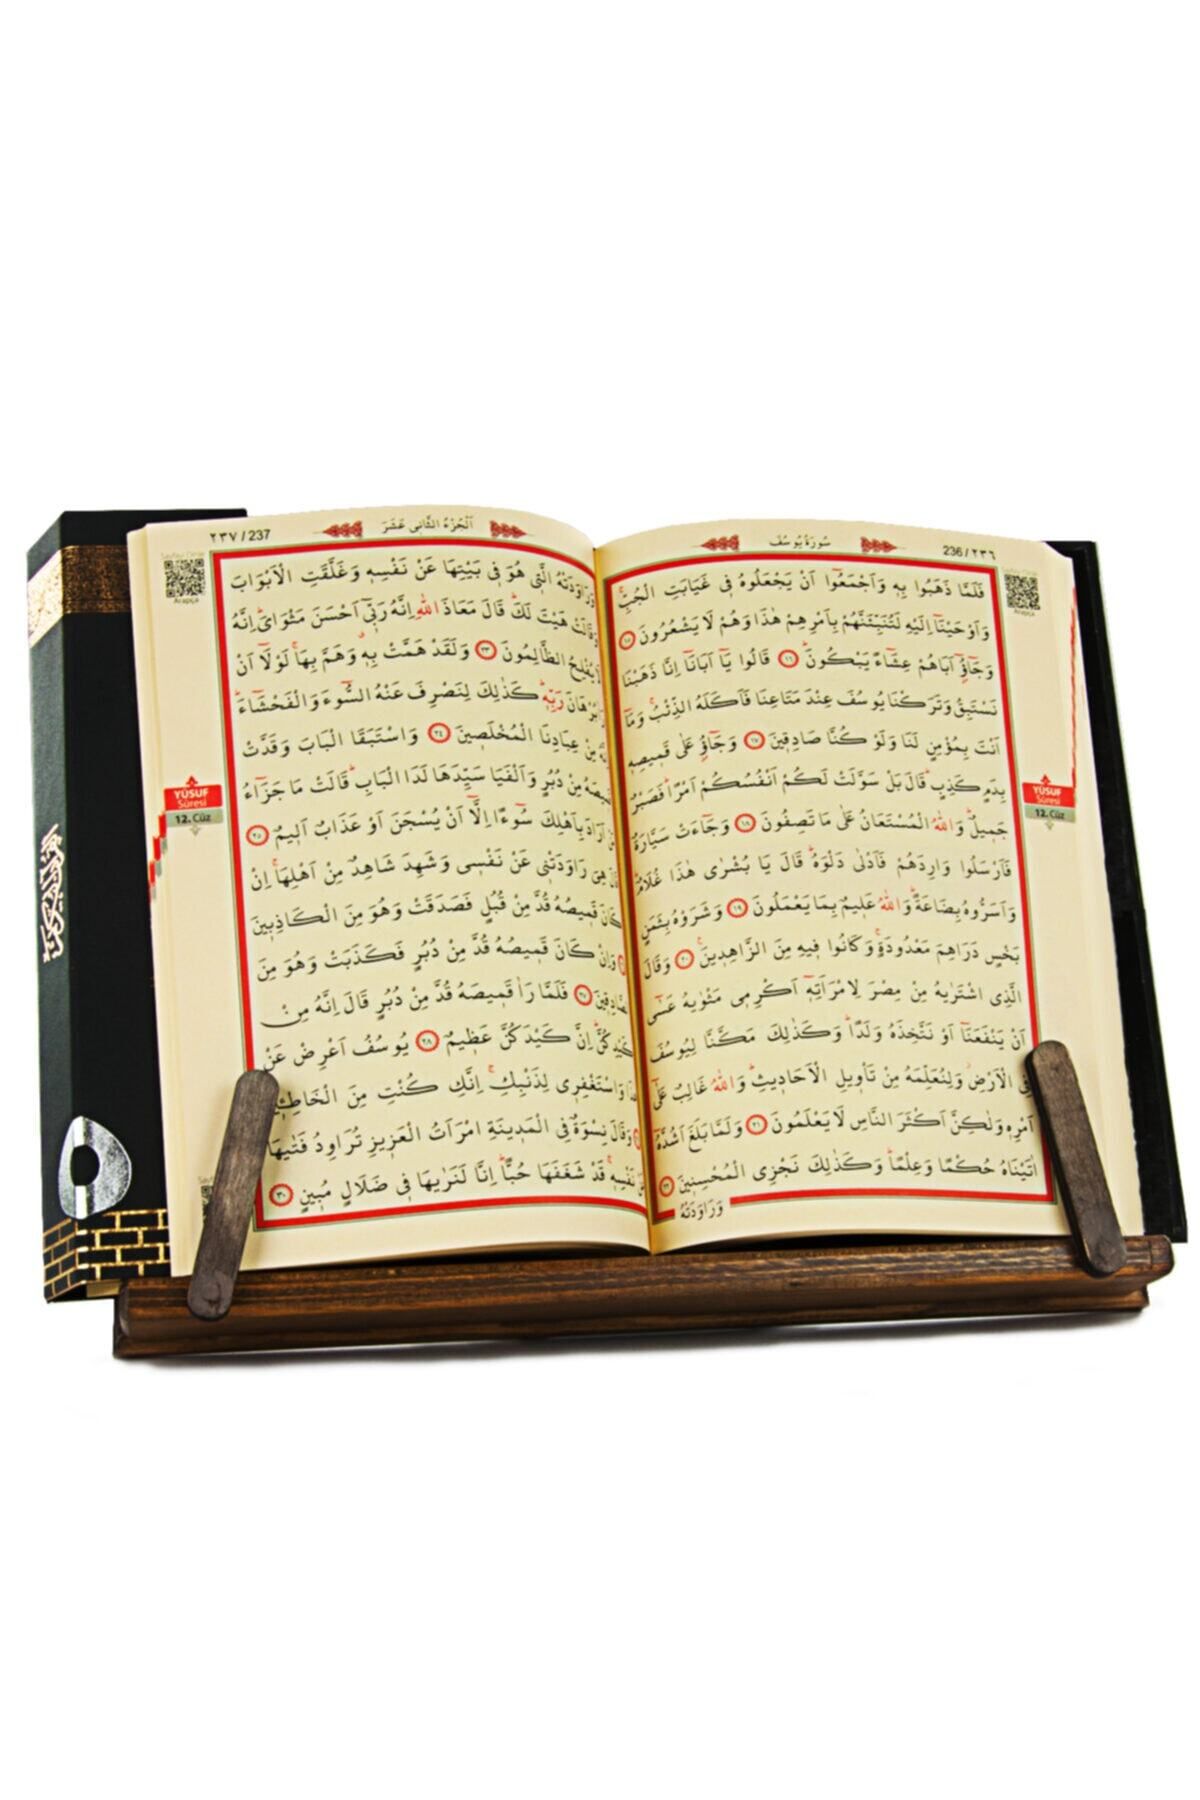 236 / ٢٣٦
سُورَةُ يُوسُفَ
فَلَمَّا ذَهَبُوا بِهٖ وَاَجْمَعُٓوا اَنْ يَجْعَلُوهُ فٖي غَيَابَتِ الْجُبِّۚ
وَاَوْحَيْنَٓا اِلَيْهِ لَتُنَبِّئَنَّهُمْ بِاَمْرِهِمْ هٰذَا وَهُمْ لَا يَشْعُرُونَ ١٥
وَجَٓاؤُٓ اَبَاهُمْ عِشَٓاءً يَبْكُونَۜ ١٦ قَالُوا يَٓا اَبَانَٓا اِنَّا ذَهَبْنَا
نَسْتَبِقُ وَتَرَكْنَا يُوسُفَ عِنْدَ مَتَاعِنَا فَاَكَلَهُ الذِّئْبُۚ وَمَٓا
اَنْتَ بِمُؤْمِنٍ لَنَا وَلَوْ كُنَّا صَادِقٖينَ ١٧ وَجَٓاؤُ عَلٰى قَمٖيصِهٖ
بِدَمٍ كَذِبٍۜ قَالَ بَلْ سَوَّلَتْ لَكُمْ اَنْفُسُكُمْ اَمْرًاۜ فَصَبْرٌ
جَمٖيلٌۜ وَاللّٰهُ الْمُسْتَعَانُ عَلٰى مَا تَصِفُونَ ١٨ وَجَٓاءَتْ سَيَّارَةٌ
فَاَرْسَلُوا وَارِدَهُمْ فَاَدْلٰى دَلْوَهُۜ قَالَ يَا بُشْرٰى هٰذَا غُلَامٌۜ
وَاَسَرُّوهُ بِضَاعَةًۜ وَاللّٰهُ عَلٖيمٌ بِمَا يَعْمَلُونَ ١٩ وَشَرَوْهُ بِثَمَنٍ
بَخْسٍ دَرَاهِمَ مَعْدُودَةٍۚ وَكَانُوا فٖيهِ مِنَ الزَّاهِدٖينَۚ ٢٠ وَقَالَ
الَّذِي اشْتَرٰيهُ مِنْ مِصْرَ لِامْرَاَتِهٖٓ اَكْرِمٖي مَثْوٰيهُ عَسٰٓى
اَنْ يَنْفَعَنَٓا اَوْ نَتَّخِذَهُ وَلَدًاۜ وَكَذٰلِكَ مَكَّنَّا لِيُوسُفَ
فِي الْاَرْضِۘ وَلِنُعَلِّمَهُ مِنْ تَأْوٖيلِ الْاَحَادٖيثِۜ وَاللّٰهُ غَالِبٌ عَلٰٓى
اَمْرِهٖ وَلٰكِنَّ اَكْثَرَ النَّاسِ لَا يَعْلَمُونَ ٢١ وَلَمَّا بَلَغَ اَشُدَّهُٓ
اٰتَيْنَاهُ حُكْمًا وَعِلْمًاۜ وَكَذٰلِكَ نَجْزِي الْمُحْسِنٖينَ ٢٢
وَرَاوَدَتْهُ
YÛSUF
Sûresi
12. Cüz
٢٣٧ / 237
اَلْجُزْءُ الثَّانٖي عَشَرَ
وَرَاوَدَتْهُ الَّتٖي هُوَ فٖي بَيْتِهَا عَنْ نَفْسِهٖ وَغَلَّقَتِ الْاَبْوَابَ
وَقَالَتْ هَيْتَ لَكَۜ قَالَ مَعَاذَ اللّٰهِ اِنَّهُ رَبّٖٓي اَحْسَنَ مَثْوَايَۜ اِنَّهُ
لَا يُفْلِحُ الظَّالِمُونَ ٢٣ وَلَقَدْ هَمَّتْ بِهٖۚ وَهَمَّ بِهَاۚ لَوْلَٓا اَنْ
بُرْهَانَ رَبِّهٖۜ كَذٰلِكَ لِنَصْرِفَ عَنْهُ السُّٓوءَ وَالْفَحْشَٓاءَۜ
مِنْ عِبَادِنَا الْمُخْلَصٖينَ ٢٤ وَاسْتَبَقَا الْبَابَ وَقَدَّتْ
قَمٖيصَهُ مِنْ دُبُرٍ وَاَلْفَيَا سَيِّدَهَا لَدَا الْبَابِۜ قَالَتْ مَا جَزَٓاءُ
اَرَادَ بِاَهْلِكَ سُٓوءًا اِلَّٓا اَنْ يُسْجَنَ اَوْ عَذَابٌ اَلٖيمٌ ٢٥
هِيَ رَاوَدَتْنٖي عَنْ نَفْسٖي وَشَهِدَ شَاهِدٌ مِنْ اَهْلِهَاۚ اِنْ
كَانَ قَمٖيصُهُ قُدَّ مِنْ قُبُلٍ فَصَدَقَتْ وَهُوَ مِنَ الْكَاذِبٖينَ
وَاِنْ كَانَ قَمٖيصُهُ قُدَّ مِنْ دُبُرٍ فَكَذَبَتْ وَهُوَ مِنَ
الصَّادِقٖينَ ٢٧ فَلَمَّا رَاٰ قَمٖيصَهُ قُدَّ مِنْ دُبُرٍ قَالَ اِنَّهُ مِنْ
كَيْدِكُنَّۜ اِنَّ كَيْدَكُنَّ عَظٖيمٌ ٢٨ يُوسُفُ اَعْرِضْ عَنْ
وَاسْتَغْفِرٖي لِذَنْبِكِۚ اِنَّكِ كُنْتِ مِنَ الْخَاطِـٖٔينَ
وَقَالَ نِسْوَةٌ فِي الْمَدٖينَةِ امْرَاَتُ الْعَزٖيزِ تُرَاوِدُ فَتٰيهَا
نَفْسِهٖۚ قَدْ شَغَفَهَا حُبًّاۜ اِنَّا لَنَرٰيهَا فٖي ضَلَالٍ مُبٖينٍ ٣٠
YÛSUF
Sûresi
12. Cüz